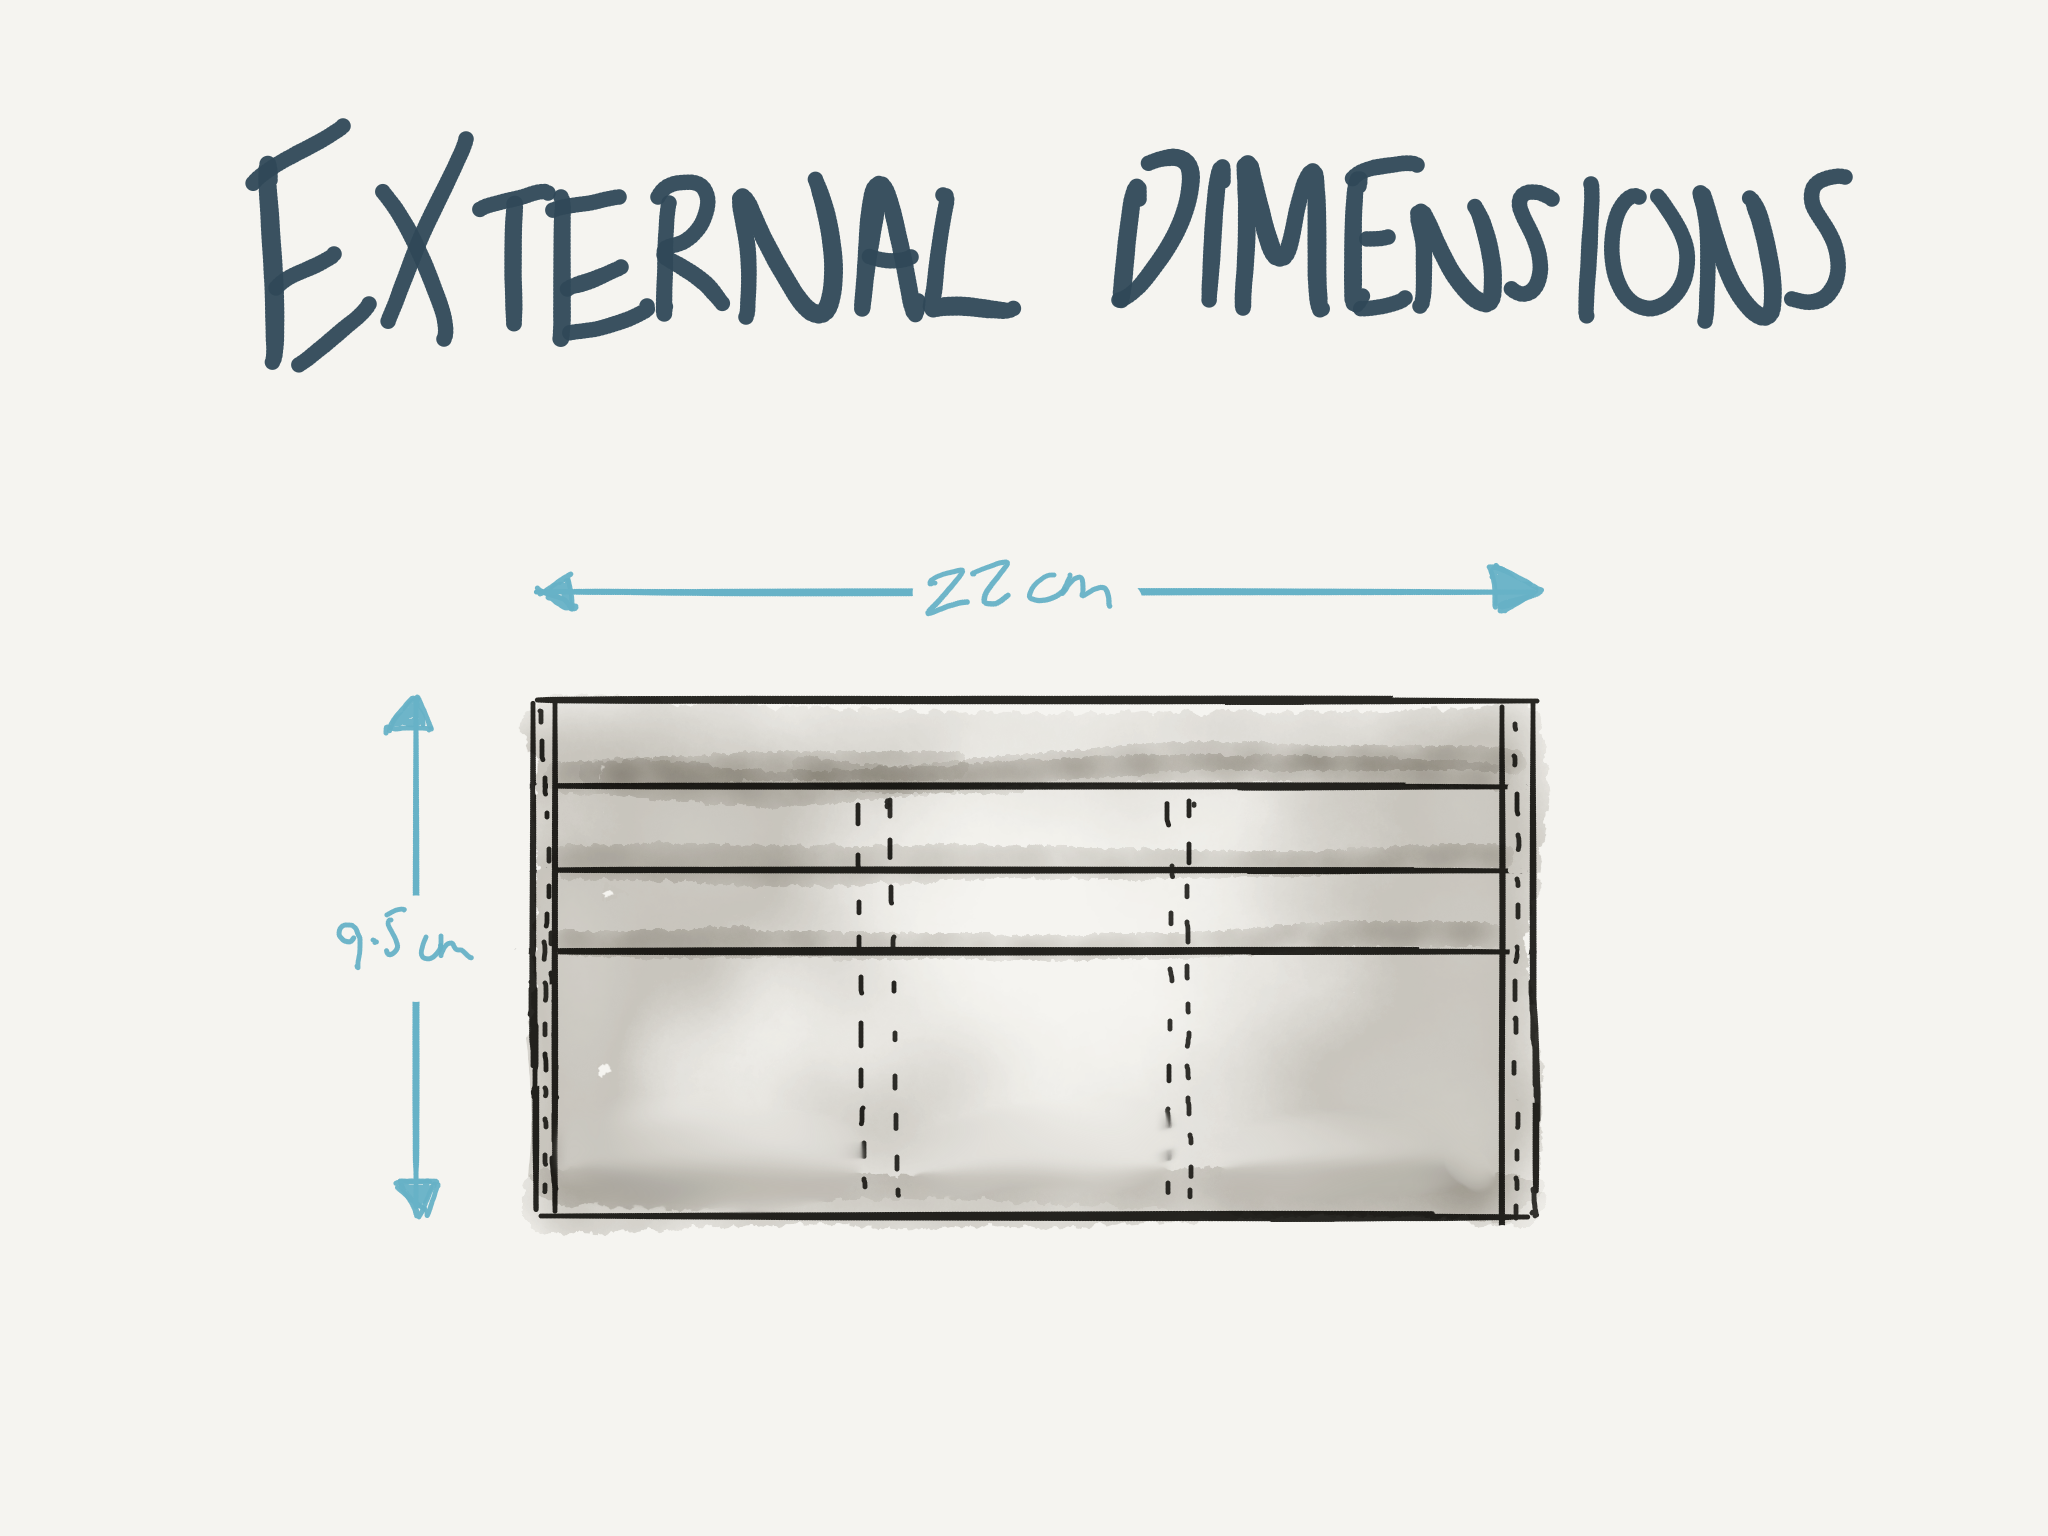 EXTERNAL DIMENSIONS
22 cm
9.5 cm